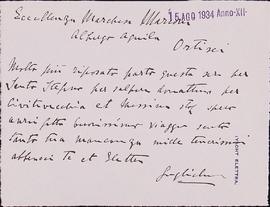 15 AGO 1934 Anno-XII-
Eccellenza Marchesa Marconi
Albergo Aquila
Ortisei
Molto più riposato parto questa sera per
Santo Stefano per salpare domattina per
Civitavecchia et Messina stop spero
avrai fatto buonissimo viaggio sento
tanto tua mancanza mille tenerissimi
abbracci te et Elettra
Guglielmo
YACHT ELETTRA